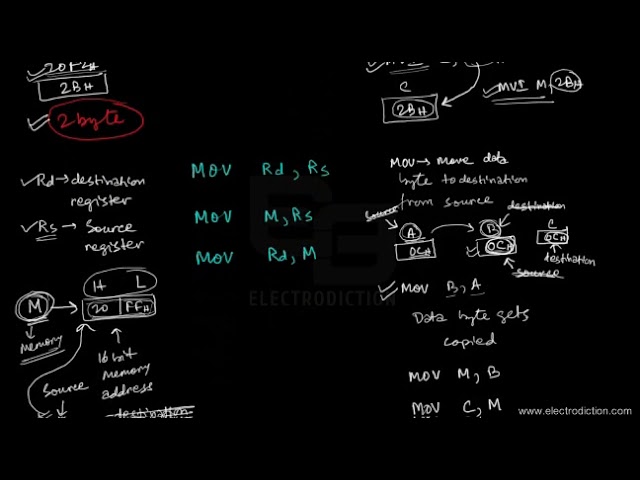 2BH
2 byte
Rd → destination
register
Rs → Source
register
M → H L
20 FFH
memory
16 bit
Memory
address
Source
destination
MOV Rd, Rs
MOV M, Rs
MOV Rd, M
ELECTRODICTION
C
2BH
MVI M, 2BH
MOV → move data
byte to destination
from source
destination
Source
A B C
0CH 0CH 0CH
destination
source
MOV B, A
Data byte gets
copied
MOV M, B
MOV C, M
www.electrodiction.com